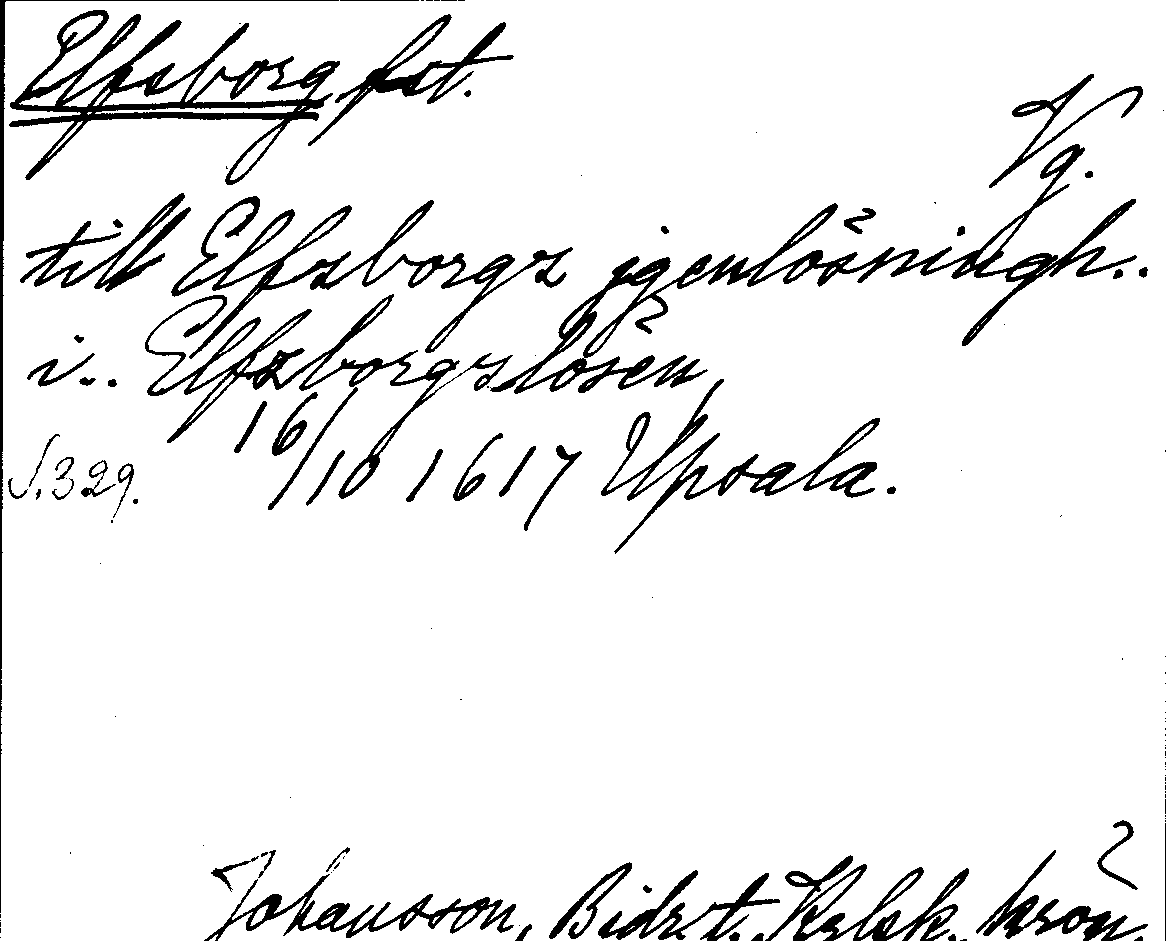 Elfsborg fst.
Vg.
till Elfsborgs jgenlösningh..
i.. Elfzborgslösen,
S.329. 16/10 1617 Upsala.
Johansson, Bidr. t. Kzlsk. krön.